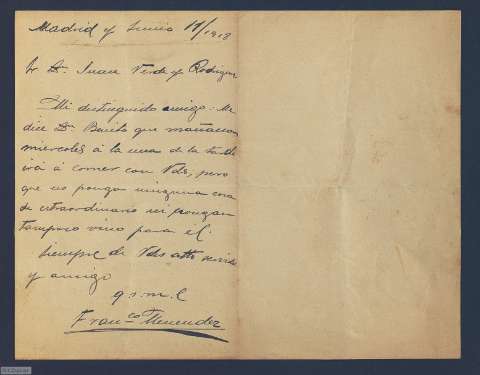 Madrid y Junio 11/1918
Sr Dn. Juan Verde y Rodríguez
Mi distinguido amigo: Me
dice Dn. Benito que mañana
miercoles á la una de la tarde
irá á comer con Vds, pero
que no pongan ninguna cosa
de extraordinario ni pongan
tampoco vino para el.
Siempre de Vds atto
y amigo
q.s.m.b
Franco Menendez